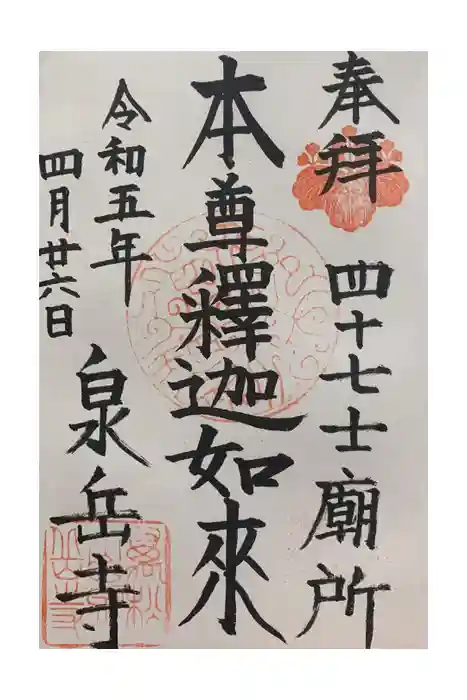 奉拜 四十七士廟所
本尊釋迦如來
令和五年
四月廿六日
泉岳寺